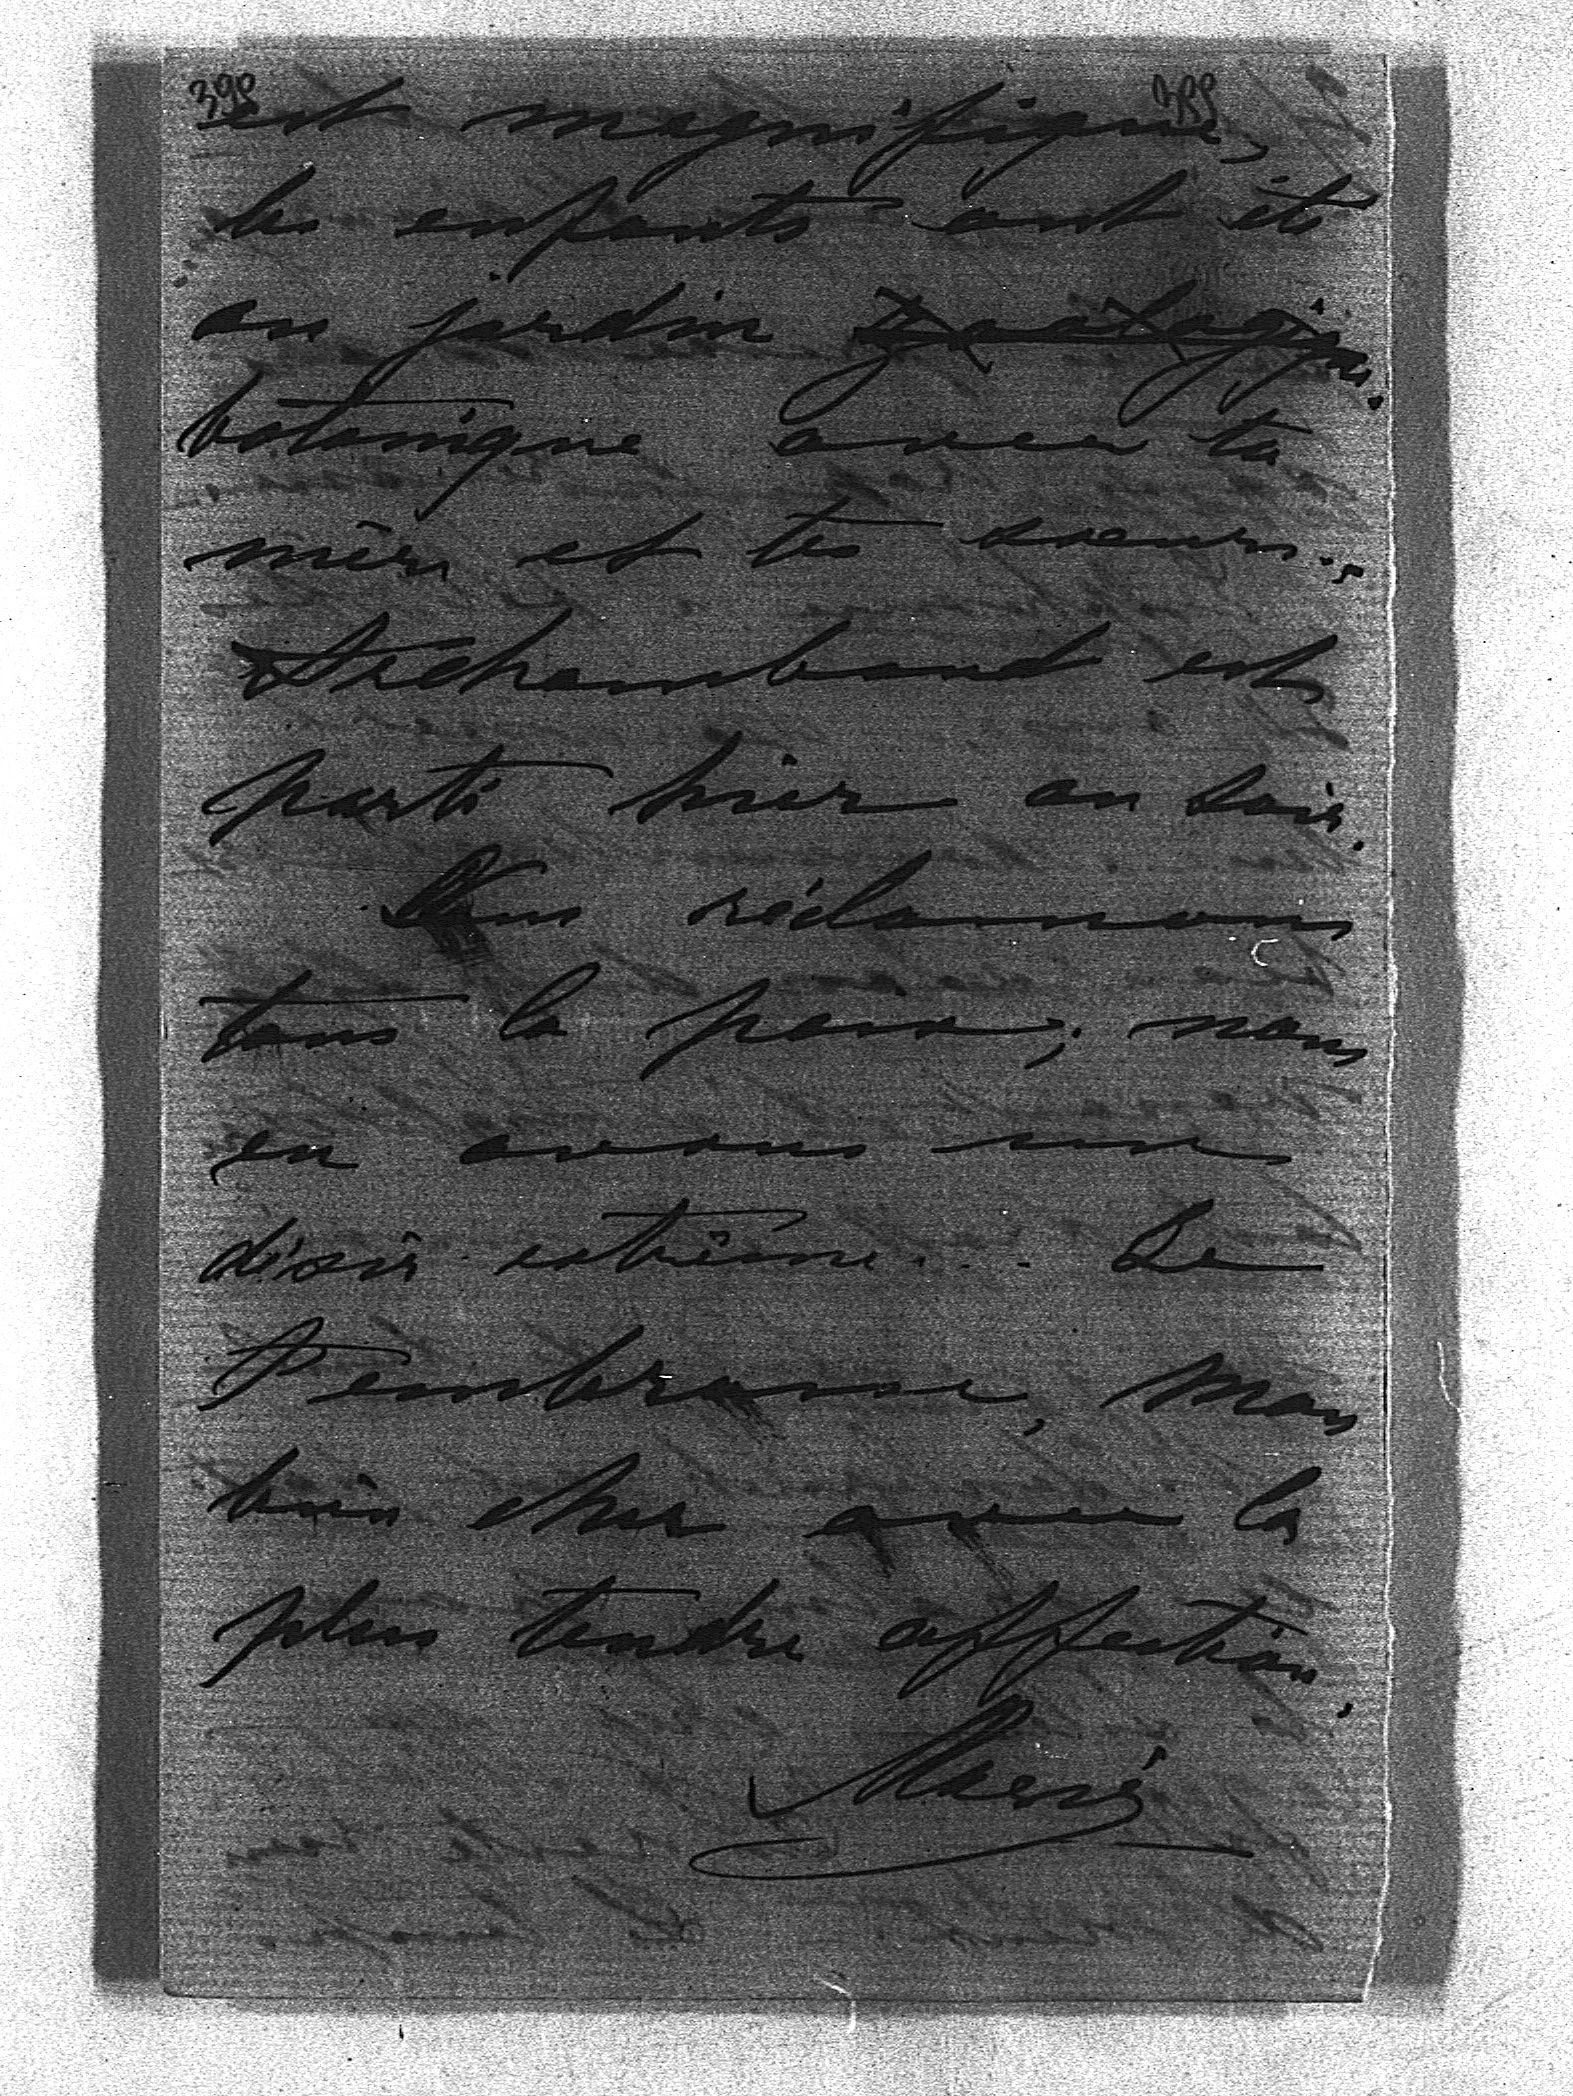 398
est magnifique,
les enfants ont été
au jardin zoologiqu
botanique avec ta
mère et tes soeurs.
Archambaud est
parti hier au soir.
Nous réclamons
tous la paix, nous
en avons un
désir extrême... Je
t'embrasse, mon
bien cher avec la
plus tendre affection.